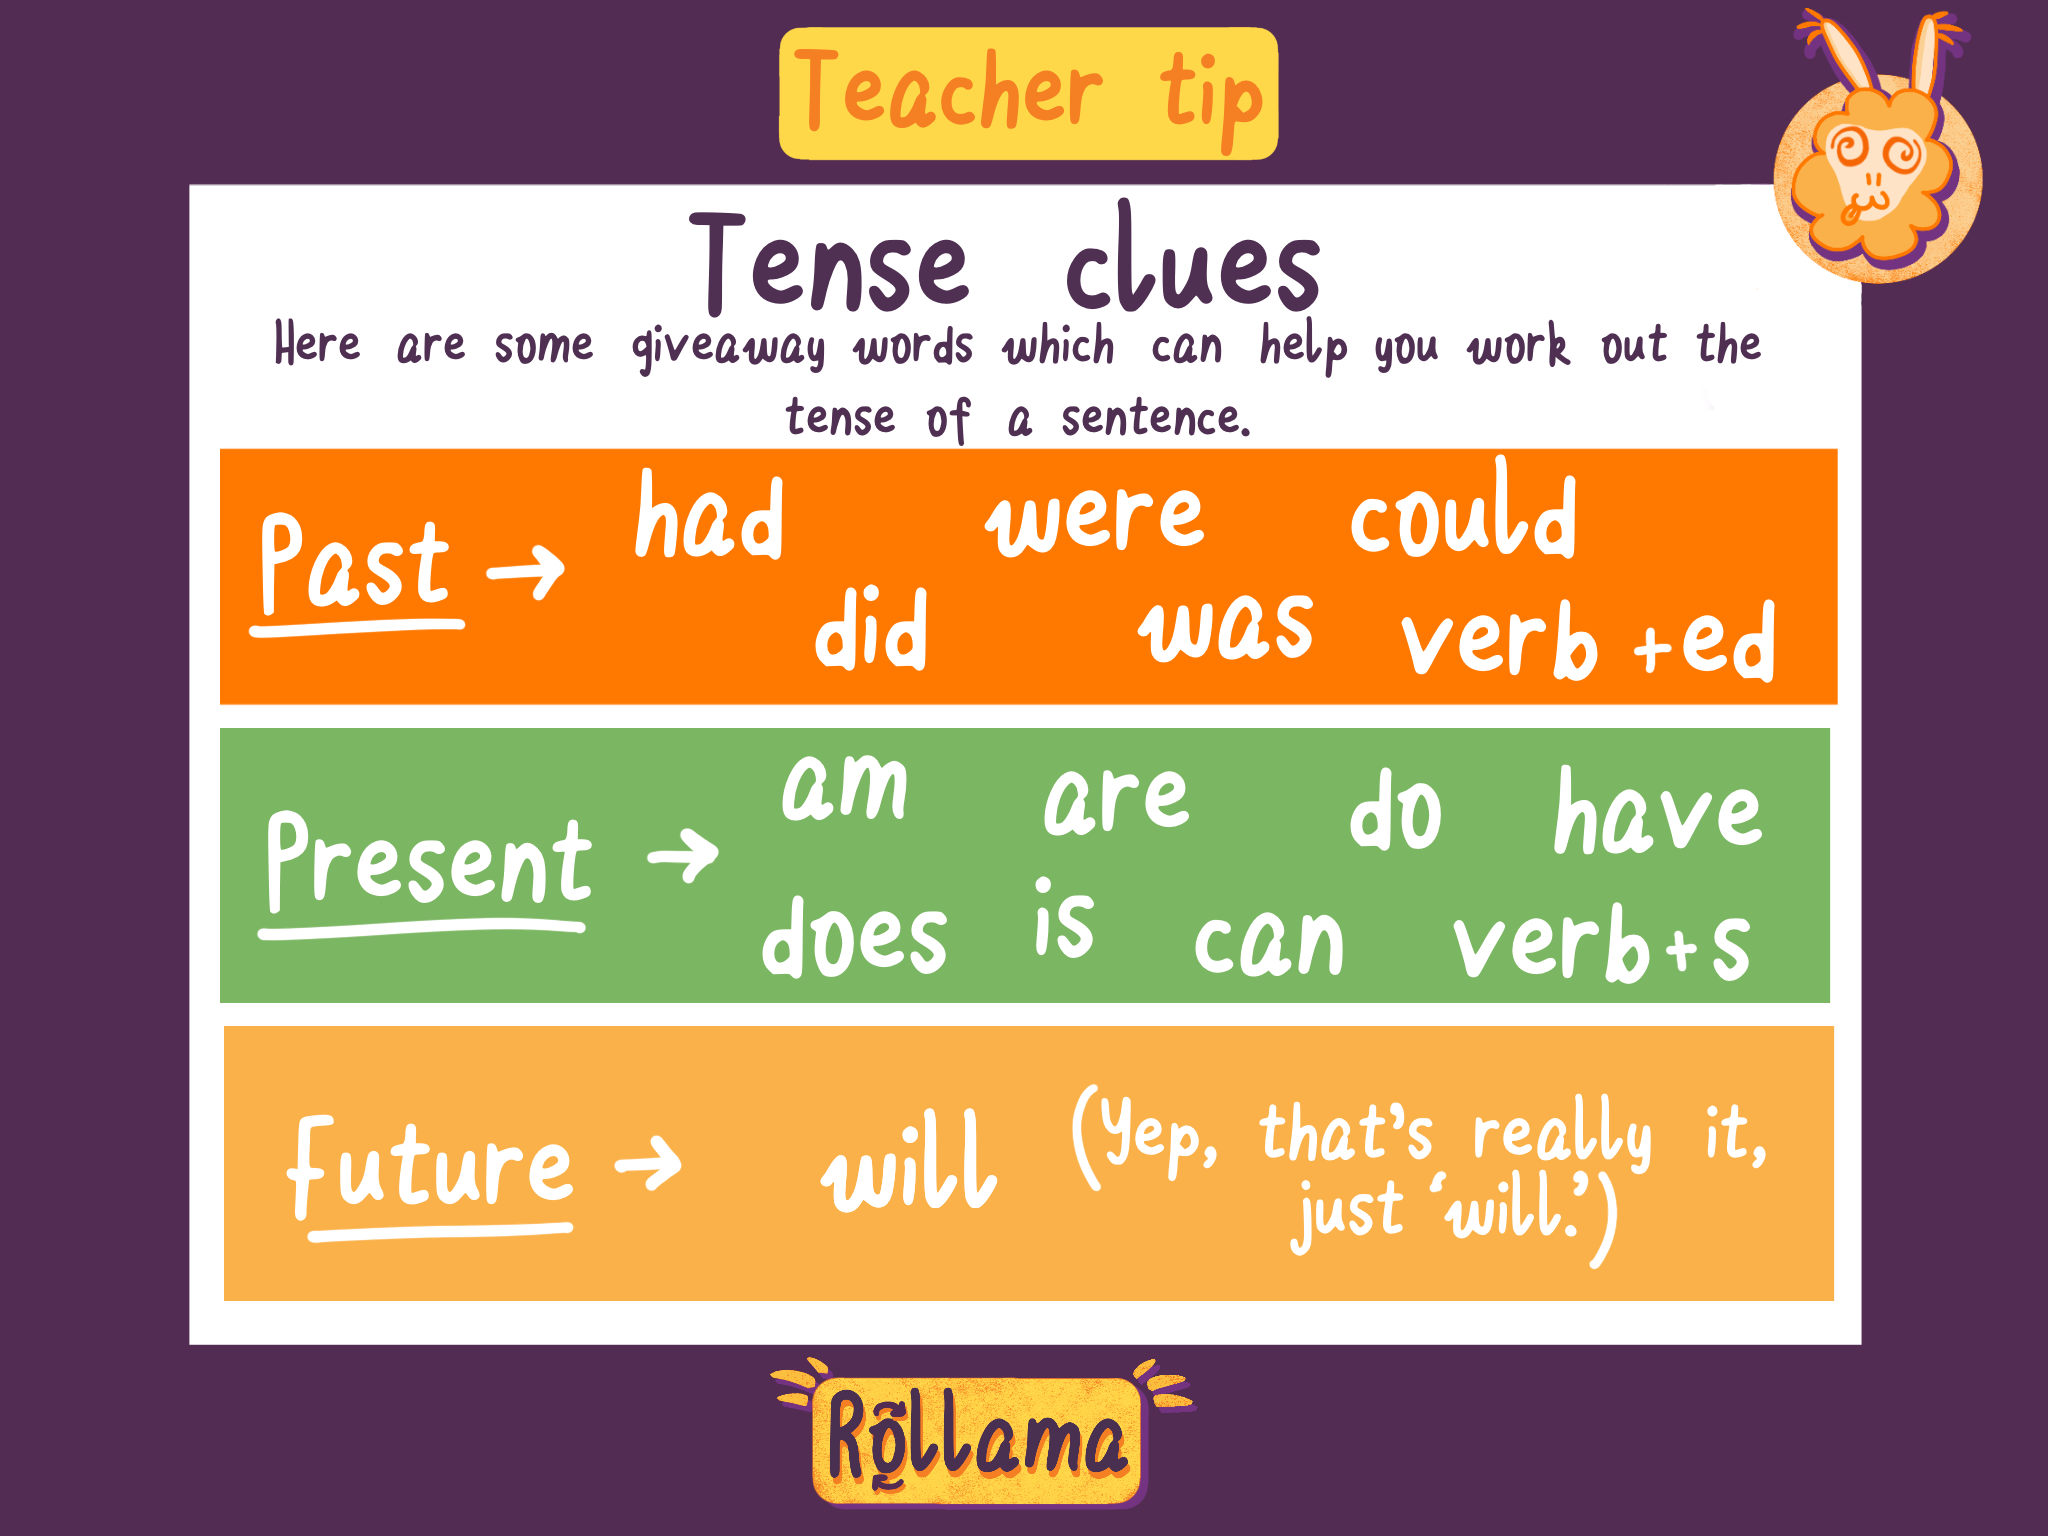 Teacher tip
Tense clues
Here are some giveaway words which can help you work out the
tense of a sentence.
Past → had were could
did was verb +ed
Present → am are do have
does is can verb+s
Future → will (Yep, that's really it,
just 'will.')
Rollama